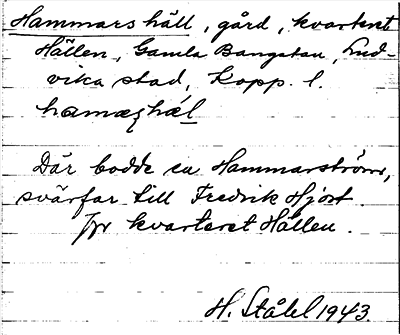 Hammars häll, gård, kvarteret
Hällen, Gamla Bangatan, Lud-
vika stad, Kopp. l.
Där bodde en Hammarström,
svärfar till Fredrik Hjort.
Jfr kvarteret Hällen.
H. Ståhl 1943.